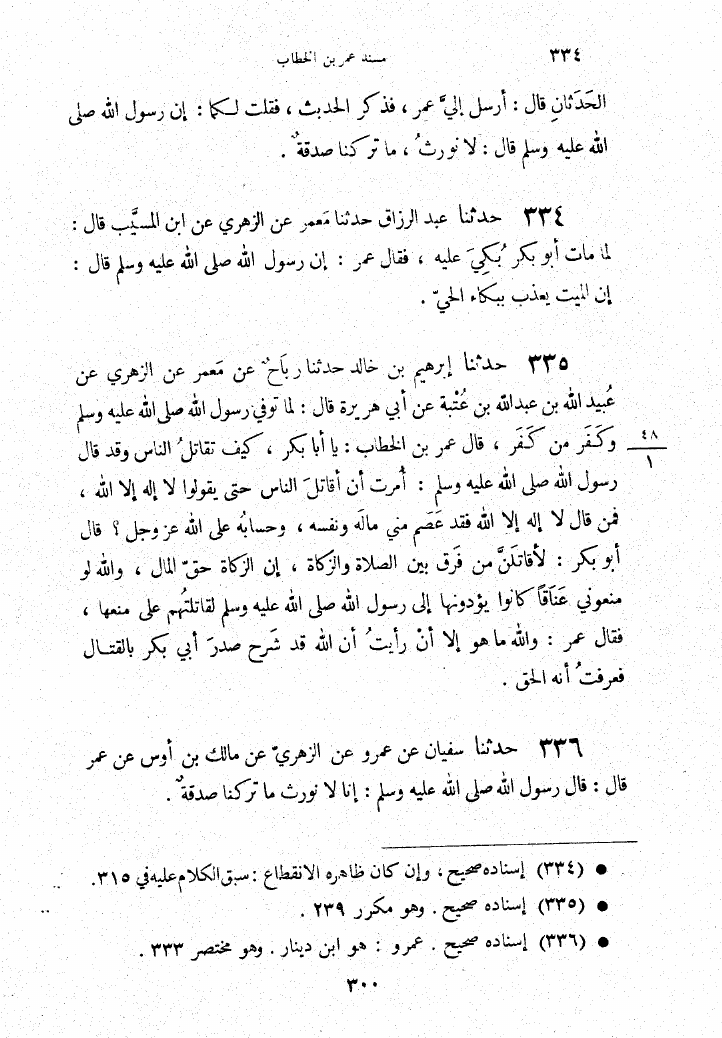 ٣٣٤ مسند عمر بن الخطاب
الحَدَثانِ قال : أرسل إليَّ عمر ، فذكر الحديث ، فقلت لكما : إن رسول الله صلى
الله عليه وسلم قال : لا نورثُ ، ما تركنا صدقةٌ .
٣٣٤ حدثنا عبد الرزاق حدثنا مَعمر عن الزهري عن ابن المسيَّب قال :
لما مات أبو بكر بُكِيَ عليه ، فقال عمر : إن رسول الله صلى الله عليه وسلم قال :
إن الميت يعذب ببكاء الحيّ .
٣٣٥ حدثنا إبرهيم بن خالد حدثنا رباحٌ عن مَعمر عن الزهري عن
عُبيد الله بن عبدالله بن عُتْبة عن أبي هريرة قال : لما توفي رسول الله صلى الله عليه وسلم
وكَفَر من كَفَر ، قال عمر بن الخطاب : يا أبا بكر ، كيف تقاتلُ الناس وقد قال
٤٨
١
رسول الله صلى الله عليه وسلم : أُمرت أن أقاتلَ الناس حتى يقولوا لا إله إلا الله ،
فمن قال لا إله إلا الله فقد عَصَم مني مالَه ونفسه ، وحسابُه على الله عز وجل ؟ قال
أبو بكر : لأقاتلَنَّ من فَرق بين الصلاة والزكاة ، إن الزكاة حقّ المال ، والله لو
منعوني عَنَاقاً كانوا يؤدونها إلى رسول الله صلى الله عليه وسلم لقاتلتُهم على منعها ،
فقال عمر : والله ما هو إلا أنْ رأيتُ أن الله قد شَرح صدرَ أبي بكر بالقتال
فعرفتُ أنه الحق .
٣٣٦ حدثنا سفيان عن عمرو عن الزهريّ عن مالك بن أوس عن عمر
قال : قال رسول الله صلى الله عليه وسلم : إنا لا نورث ما تركنا صدقةٌ .
• (٣٣٤) إسناده صحيح ، وإن كان ظاهره الانقطاع : سبق الكلام عليه في ٣١٥.
• (٣٣٥) إسناده صحيح . وهو مكرر ٢٣٩ .
• (٣٣٦) إسناده صحيح . عمرو : هو ابن دينار . وهو مختصر ٣٣٣ .
٣٠٠